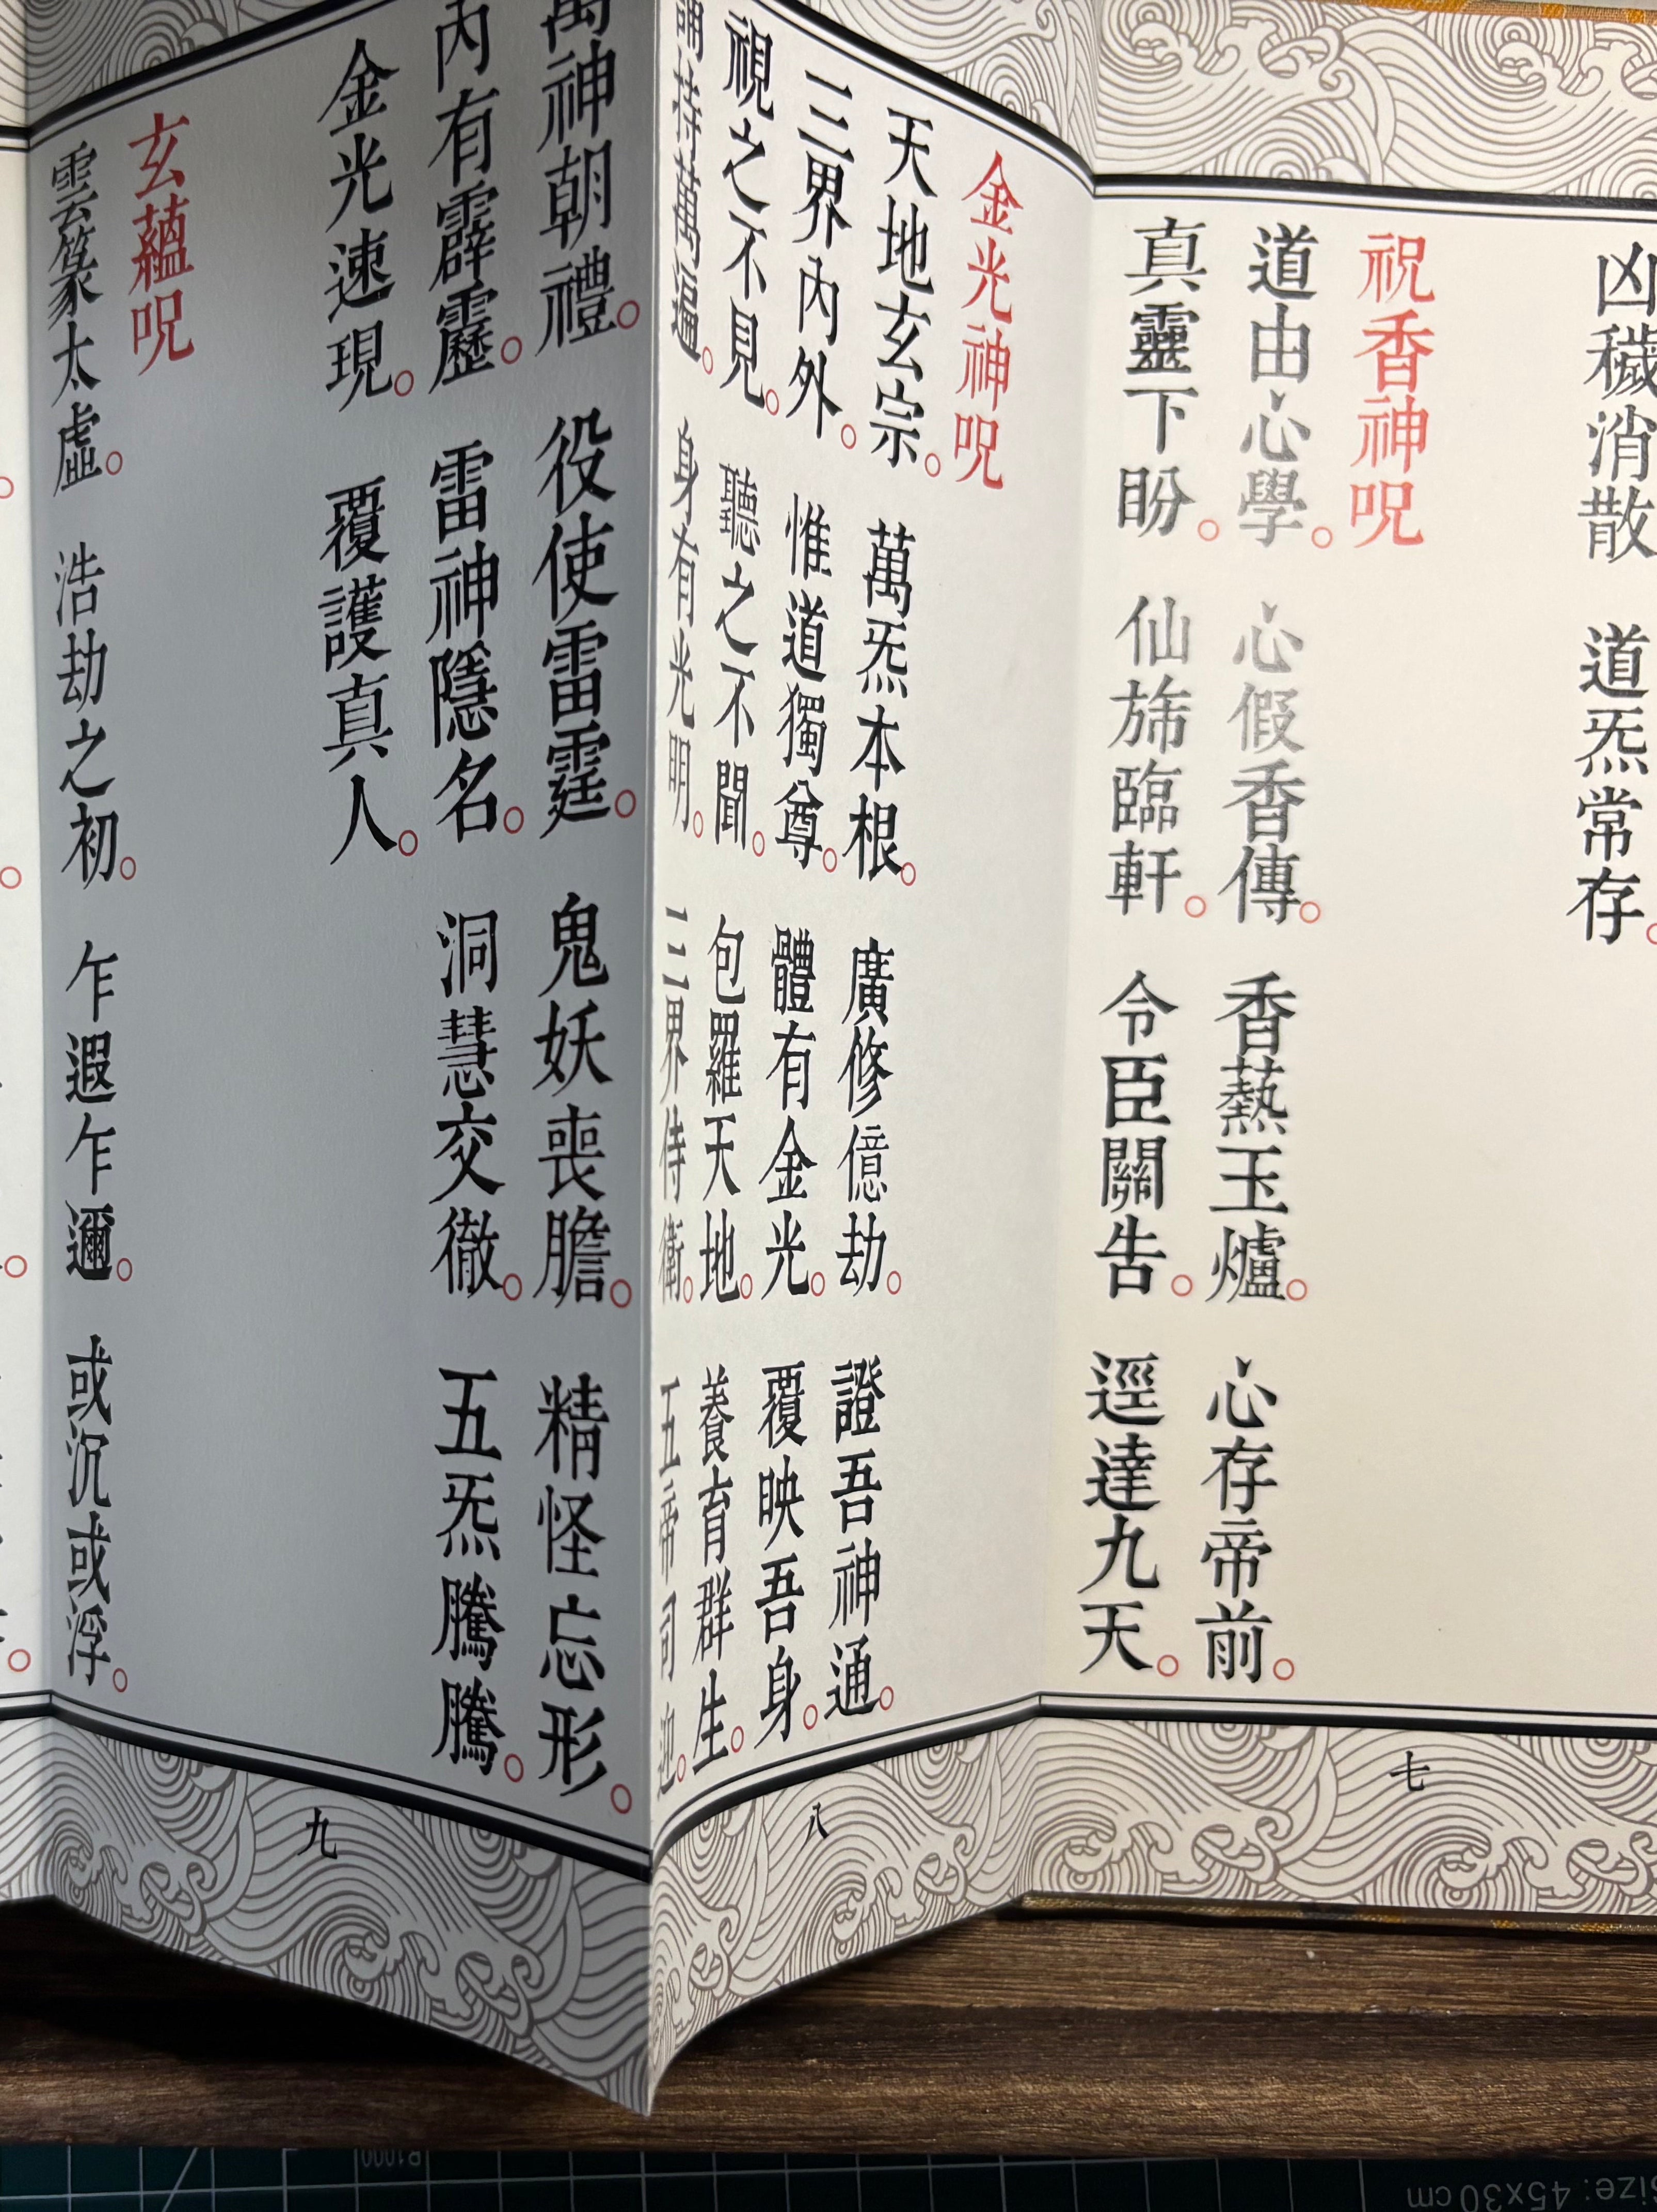 凶穢消散。道炁常存。
祝香神呪
道由心學。心假香傳。香爇玉爐。心存帝前。
真靈下盼。仙旆臨軒。令臣關告。逕達九天。
七
金光神呪
天地玄宗。萬炁本根。廣修億劫。證吾神通。
三界內外。惟道獨尊。體有金光。覆映吾身。
視之不見。聽之不聞。包羅天地。養育群生。
誦持萬遍。身有光明。三界侍衛。五帝司迎。
八
萬神朝禮。役使雷霆。鬼妖喪膽。精怪忘形。
內有霹靂。雷神隱名。洞慧交徹。五炁騰騰。
金光速現。覆護真人。
玄蘊呪
雲篆太虛。浩劫之初。乍遐乍邇。或沉或浮。
九
R1000
Size: 45x30cm